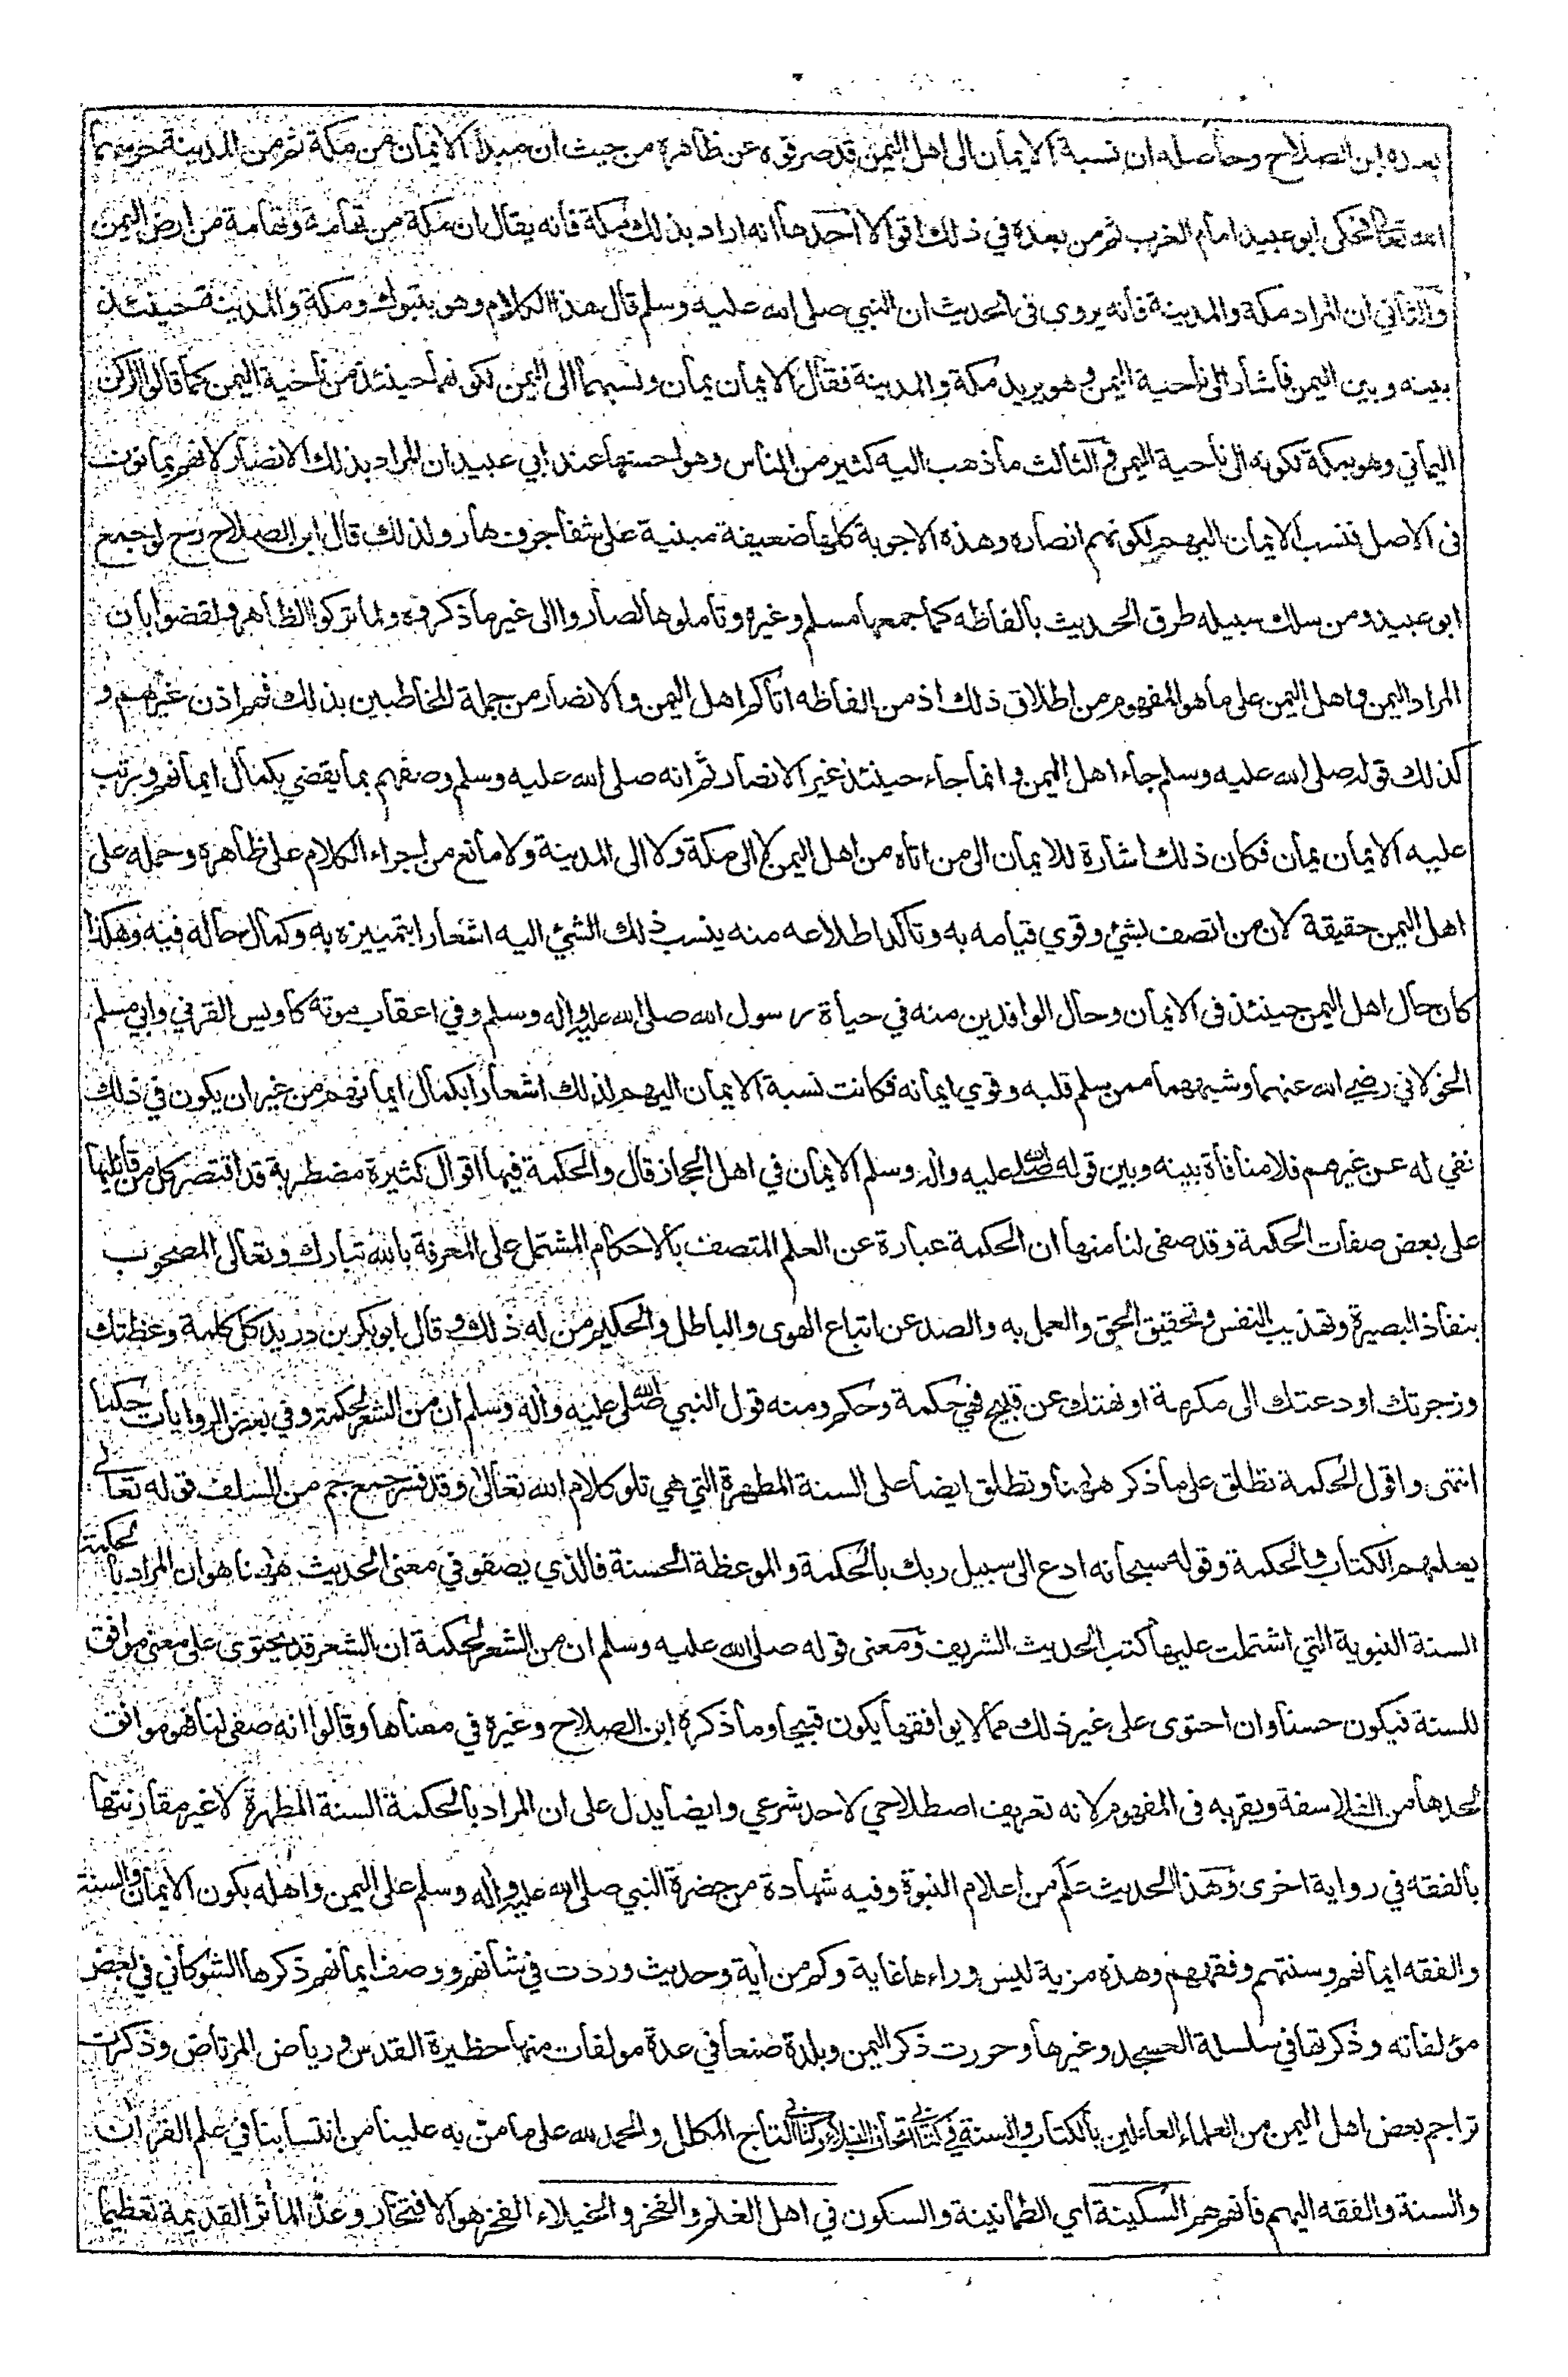 بعده ابن الصلاح وحاصله ان نسبة الايمان الى اهل اليمن قد صرفوه عن ظاهره من حيث ان مبدأ الايمان من مكة ثم من المدينة حرسهما
الله تعالى فحكى ابو عبيد امام الغرب ثم من بعده في ذلك اقوالا احدها انه اراد بذلك مكة فانه يقال ان مكة من تهامة وتهامة من ارض اليمن
والثاني ان المراد مكة والمدينة فانه يروى فى الحديث ان النبي صلى الله عليه وسلم قال هذا الكلام وهو بتبوك ومكة والمدينة حينئذ
بينه وبين اليمن فاشار الى ناحية اليمن وهو يريد مكة والمدينة فقال الايمان يمان ونسبهما الى اليمن لكونهما حينئذ من ناحية اليمن كما قالوا الركن
اليماني وهو بمكة لكونه الى ناحية اليمن والثالث ما ذهب اليه كثير من الناس وهو احسنها عند ابي عبيد ان المراد بذلك الانصار لانهم يمانون
فى الاصل فنسب الايمان اليهم لكونهم انصاره وهذه الاجوبة كلها ضعيفة مبنية على شفا جرف هار ولذلك قال ابن الصلاح رح لو جمع
ابو عبيد ومن سلك سبيله طرق الحديث بالفاظه كما جمعها مسلم وغيره وتاملوها لصاروا الى غير ما ذكروه ولما تركوا الظاهر ولقضوا بان
المراد اليمن واهل اليمن على ما هو المفهوم من اطلاق ذلك اذ من الفاظه اتاكم اهل اليمن والانصار من جملة المخاطبين بذلك فهم اذن غيرهم و
كذلك قوله صلى الله عليه وسلم جاء اهل اليمن وانما جاء حينئذ غير الانصار ثم انه صلى الله عليه وسلم وصفهم بما يقضي بكمال ايمانهم ورتب
عليه الايمان يمان فكان ذلك اشارة للايمان الى من اتاه من اهل اليمن لا الى مكة ولا الى المدينة ولا مانع من اجراء الكلام على ظاهره وحمله على
اهل اليمن حقيقة لان من اتصف بشئ وقوي قيامه به وتاكد اطلاعه منه ينسب ذلك الشئ اليه اشعارا بتمييزه به وكمال حاله فيه وهكذا
كان حال اهل اليمن حينئذ فى الايمان وحال الوافدين منه في حياة رسول الله صلى الله عليه واله وسلم وفي اعقاب موته كاويس القرني وابي مسلم
الخولاني رضي الله عنهما وشبههما ممن سلم قلبه وقوي ايمانه فكانت نسبة الايمان اليهم لذلك اشعارا بكمال ايمانهم من غير ان يكون في ذلك
نفي له عن غيرهم فلا منافاة بينه وبين قوله صلى الله عليه واله وسلم الايمان في اهل الحجاز قال والحكمة فيها اقوال كثيرة مضطربة قد اقتصر كل من قائليها
على بعض صفات الحكمة وقد صفى لنا منها ان الحكمة عبارة عن العلم المتصف بالاحكام المشتمل على المعرفة بالله تبارك وتعالى المصحوب
بنفاذ البصيرة وتهذيب النفس وتحقيق الحق والعمل به والصد عن اتباع الهوى والباطل والحكيم من له ذلك وقال ابو بكر بن دريد كل كلمة وعظتك
وزجرتك او دعتك الى مكرمة او نهتك عن قبيح فهي حكمة وحكم ومنه قول النبي صلى الله عليه واله وسلم ان من الشعر لحكمة وفي بعض الروايات حكما
انتهى واقول الحكمة تطلق على ما ذكر ههنا وتطلق ايضا على السنة المطهرة التي هي تلو كلام الله تعالى وقد فسر جمع جم من السلف قوله تعالى
يعلمهم الكتاب والحكمة وقوله سبحانه ادع الى سبيل ربك بالحكمة والموعظة الحسنة فالذي يصفو في معنى الحديث ههنا هو ان المراد بالحكمة
السنة النبوية التي اشتملت عليها كتب الحديث الشريف ومعنى قوله صلى الله عليه وسلم ان من الشعر لحكمة ان الشعر قد يحتوى على معنى موافق
للسنة فيكون حسنا وان احتوى على غير ذلك مما لا يوافقها يكون قبيحا وما ذكره ابن الصلاح وغيره في معناها وقالوا انه صفى لنا فهو موافق
لحدها من الفلاسفة ويقربه فى المفهوم لانه تعريف اصطلاحي لا حد شرعي وايضا يدل على ان المراد بالحكمة السنة المطهرة لا غير مقارنتها
بالفقه في رواية اخرى وهذا الحديث علم من اعلام النبوة وفيه شهادة من حضرة النبي صلى الله عليه واله وسلم على اليمن واهله بكون الايمان والسنة
والفقه ايمانهم وسنتهم وفقههم وهذه مزية ليس وراءها غاية وكم من اية وحديث وردت في شانهم ووصف ايمانهم ذكرها الشوكاني في بعض
مؤلفاته وذكرتها في سلسلة العسجد وغيرها وحررت ذكر اليمن وبلدة صنعا في عدة مولفات منها حظيرة القدس و رياض المرتاض وذكرت
تراجم بعض اهل اليمن من العلماء العاملين بالكتاب والسنة في كتابي اتحاف النبلاء وكتابي التاج المكلل والحمد لله على ما من به علينا من انتسابنا في علم القران
والسنة والفقه اليهم فانهم هم السكينة اي الطمانينة والسكون في اهل الغنم والفخر والخيلاء الفخر هو الافتخار وعد المآثر القديمة تعظيما